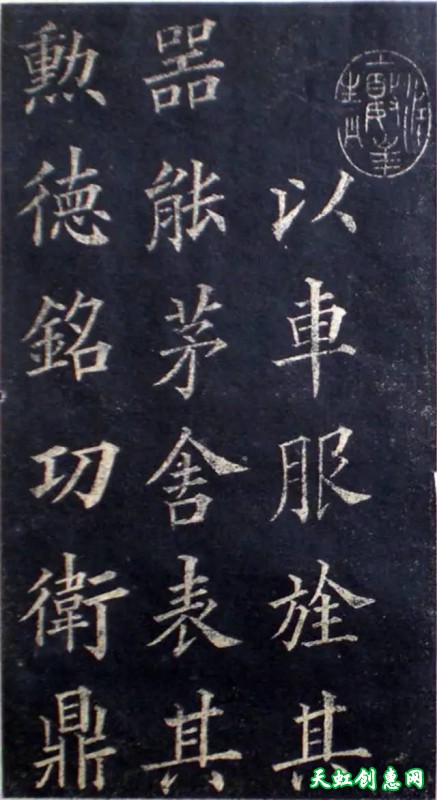 以車服旌其
器能茅舍表其
勲德銘功衛鼎
天虹创惠网